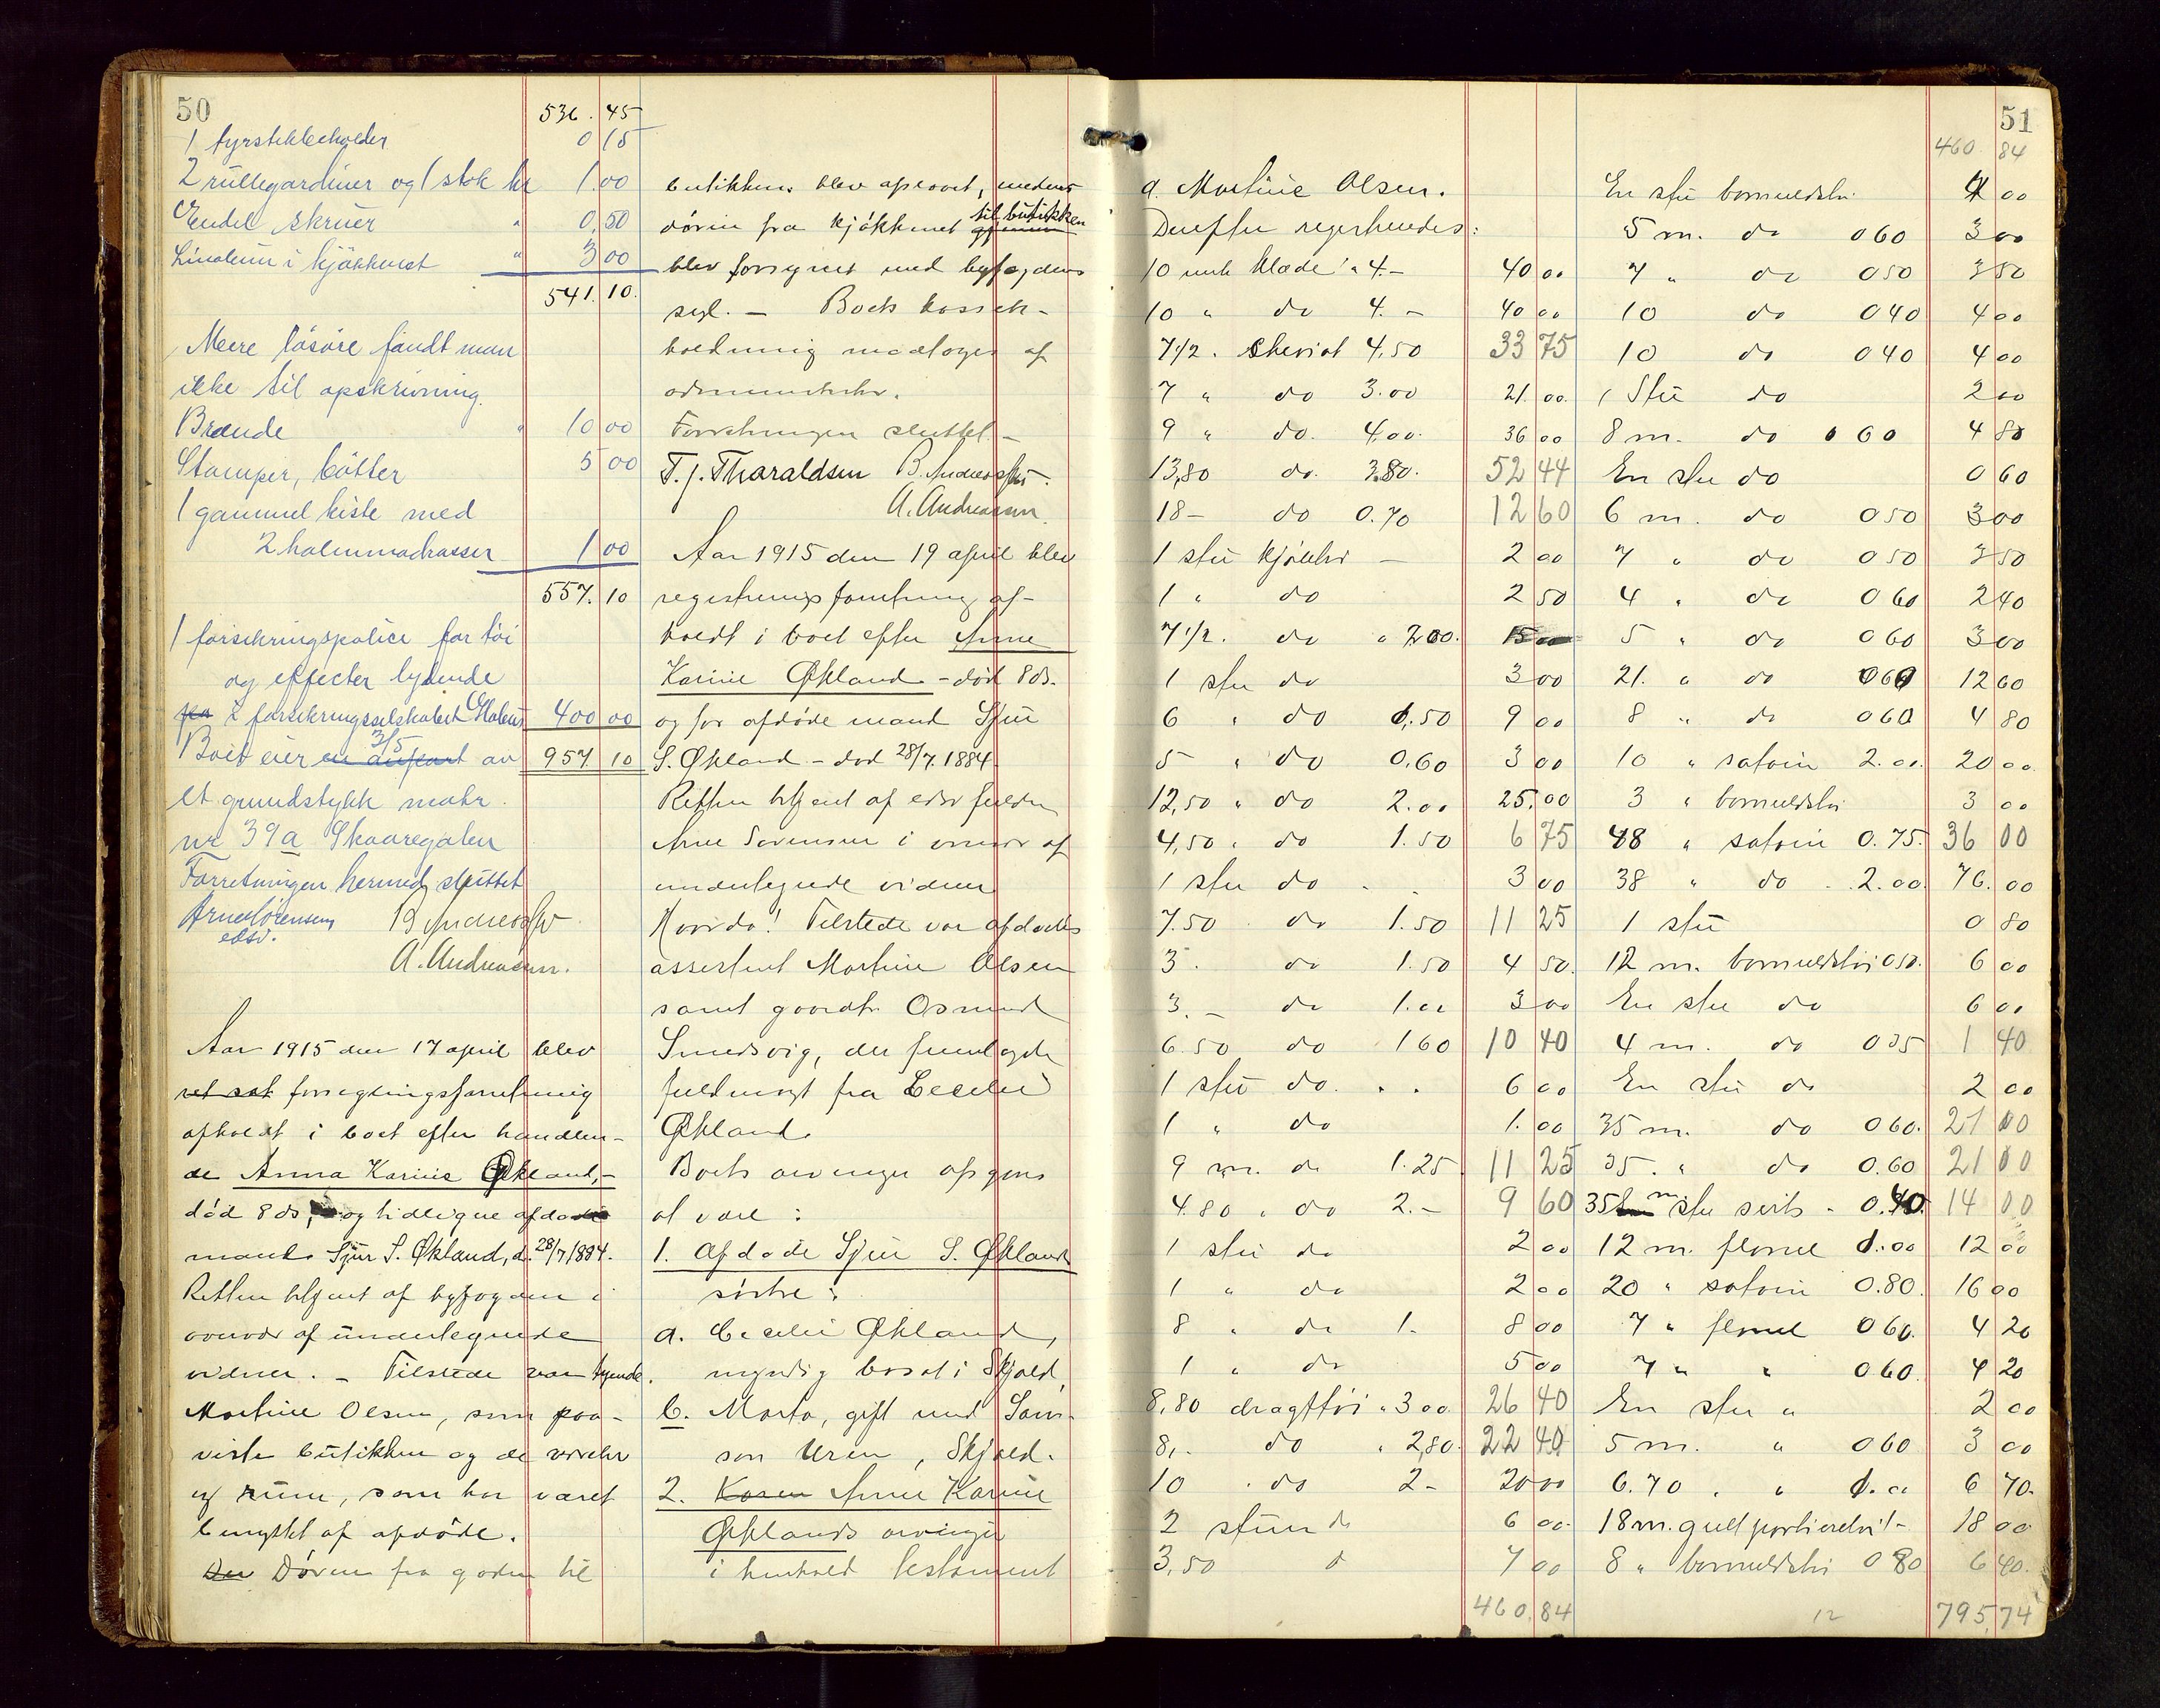 50
536. 45
1 fyrstikkbeholder 0 15
2 rullegardiner og 1 stok kr 1 00
Endel skruer " 0,50
Linoleum i kjøkkenet " 3 00
541. 10.
Mere løsøre fandt man
ikke til opskrivning.
Brænde " 10 00
Stamper, bøtter 5 00
1 gammel kiste med
2 halmmadrasser 1 00
557. 10
1 forsikringspolice for tøi
og effecter lydende
paa i forsikringsselskabet 400 00
Boet eier en anpart 3/5 av 957 10
et grundstykke matr.
nr 39a Skaaregaten
Forretningen hermed sluttet
Arne Sørensen B Andreassen
edsv.
A. Andreasen.
Aar 1915 den 17 april blev
ret sat forseglingsforretning
afholdt i boet efter handlen-
de Anna Karine Økland,-
død 8 ds, og tidligere afdøde
mand Sjur S. Økland, d. 28/7 1884.
Retten betjent af byfogden i
overvær af undertegnede
vidner. - Tilstede var tyende.
Martine Olsen, som paa-
viste butikken og de værelser
og rum, som har været
benyttet af afdøde.
Den Døren fra gaden til
butikken blev aflaaset, medens
døren fra kjøkkenet gjennem til butikken
blev forsynet med byfogdens
segl. - Boets kasse
beholdning modtoges af
administrator.
Forretningen sluttet. -
T. J. Tharaldsen B. Andreassen.
A. Andreasen.
Aar 1915 den 19 april blev
registreringsforretning af-
holdt i boet efter Anne
Karine Økland - død 8 ds.
og før afdøde mand Sjur
S. Økland - død 28/7. 1884
Retten betjent af edsv fuldm
Arne Sørensen i overvær af
undertegnede vidner
Hvorda! Tilstede var afdødes
assistent Martine Olsen
samt gaardbr. Osmund
Smedsvig, der fremlagde
fuldmagt fra Cecilie
Økland.
Boets arvinger opgives
at være :
1. Afdøde Sjur S. Økland
søstre :
a. Cecilie Økland,
myndig bosat i Skjold,
b. Marta, gift med Sam-
son Uren, Skjold.
2. Karen Anne Karine
Øklands arvinger
i henhold testament
51
a. Martine Olsen.
Derefter registreredes:
10 mtr klæde " 4.- 40 00
10 " do 4.- 40 00
7 1/2 . Cheviot 4,50 33 75
7 " do 3.00 21. 00.
9 " do. 4,00. 36 00
13,80 do. 3.80. 52 44
18- do 0.70 12 60
1 stu kjoletøi - 2 00
1 " do 2 50
7 1/2. do " 2.00. 15 00
1 stu do 3 00
6 " do 1,50 9 00
5 " do 0,60 3 00
12,50 " do 2.00 25,00
4,50 " do 1.50 6 75
1 stu do . . 3 00
7.50 . do 1.50 11 25
3 . do 1.50 4 50.
3.- do 1.00 3 00
6.50 do 1 60 10 40
1 stu do . . 6 00
1 " do 1.00
9 m. do 1.25 11 25
4.80 " do 2.- 9 60
1 stu do 2 00
1 " do 2 00
8 " do 1. 8 00
1 " do 5 00
8,80 dragttøi " 3 00 26 40
8,- do " 2,80. 22 40
10 . do 2- 20 00
2 stun do 6 00
3,50 d 7 00
460,84
460. 84
En stu bomuldstøi 4 00
5 m. do 0 60 3 00
7 " do 0 50 3 50
10 do 0 40 4 00
10 do 0 40 4 00
1 Stu do 2 00
8 m. do 0 60 4 80
En stu do 0 60
6 m. do 0 50 3 00
7 " do 0 50 3 50
4 " do 0 60 2 40
5 " do 0 60 3 00
21. " do 0 60 12 60
8 " do 0 60 4 80
10 " satoin 2.00. 20 00
3 " bomuldstøi 3 00
48 " satoin 0.75. 36 00
38 " do . 2.00. 76. 00
1 stu 0 80
12 m. bomuldstøi 0 50. 6 00
En stu do 6 00
4 m. do 0 35 1 40
En stu do 2 00
35 m. do 0 60. 21 00
35. " do 0.60 21 00
35 m stu sirts - 0.40. 14 00
12 m. flonel 1.00 12 00
20 " satoin 0.80. 16 00
7 " flonel 0 60. 4 20
7 " " 0 60. 4 20
En stu " 2 00
5 m. " 0 60 3 00
6.70 . " 1.00 6 70.
18 m. gult portieretøi 1- 18 00
8 " bomuldstøi 0 80 6 40.
12
795,74